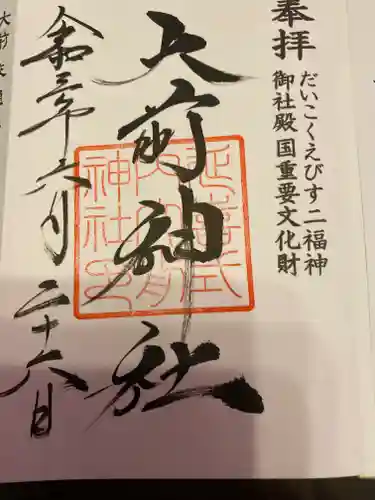 奉拝
だいこくえびす二福神
御社殿国重要文化財
大前神社
延喜式内大前神社
令和三年六月二十六日